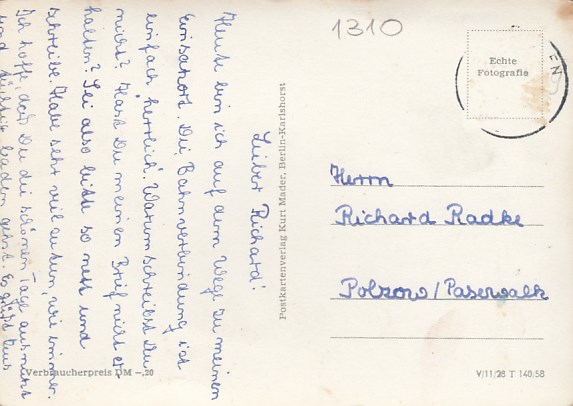 1310
Echte
Fotografie
EN
Lieber Richard!
Heute bin ich auf dem Wege zu meinen
Einsatzort. Die Bahnverbindung ist
einfach herrlich. Warum schreibst Du
nicht? Hast Du meinen Brief nicht er-
halten? Sei also bitte so nett und
schreibe. Habe sehr viel zu tun wie immer.
Ich hoffe, daß Du die schönen Tage ausnutzt
und tüchtig baden gehst. Es grüßt
Postkartenverlag Kurt Mader, Berlin-Karlshorst
Herrn
Richard Radke
Polzow/Pasewalk
Verbraucherpreis DM -,20
V/11/28 T 140/58